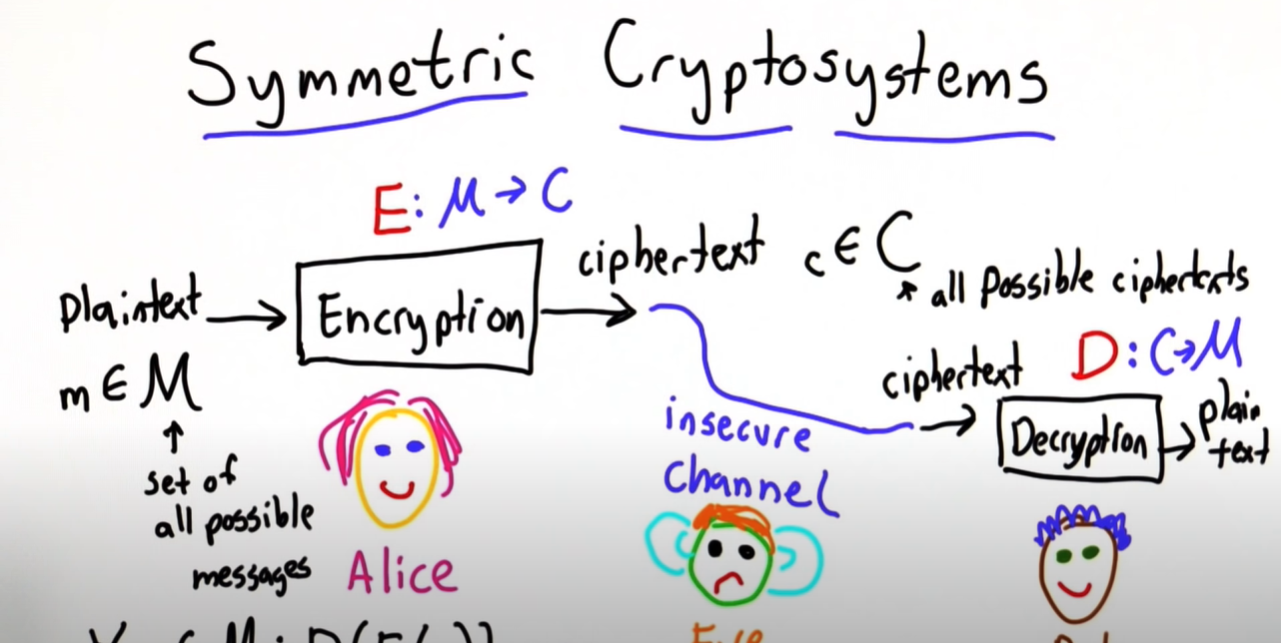 Symmetric Cryptosystems
E: M → C
Plaintext → Encryption → ciphertext c ∈ C
all possible ciphertexts
m ∈ M
set of
all possible
messages
Alice
insecure
Channel
ciphertext → Decryption → plain
text
D: C → M